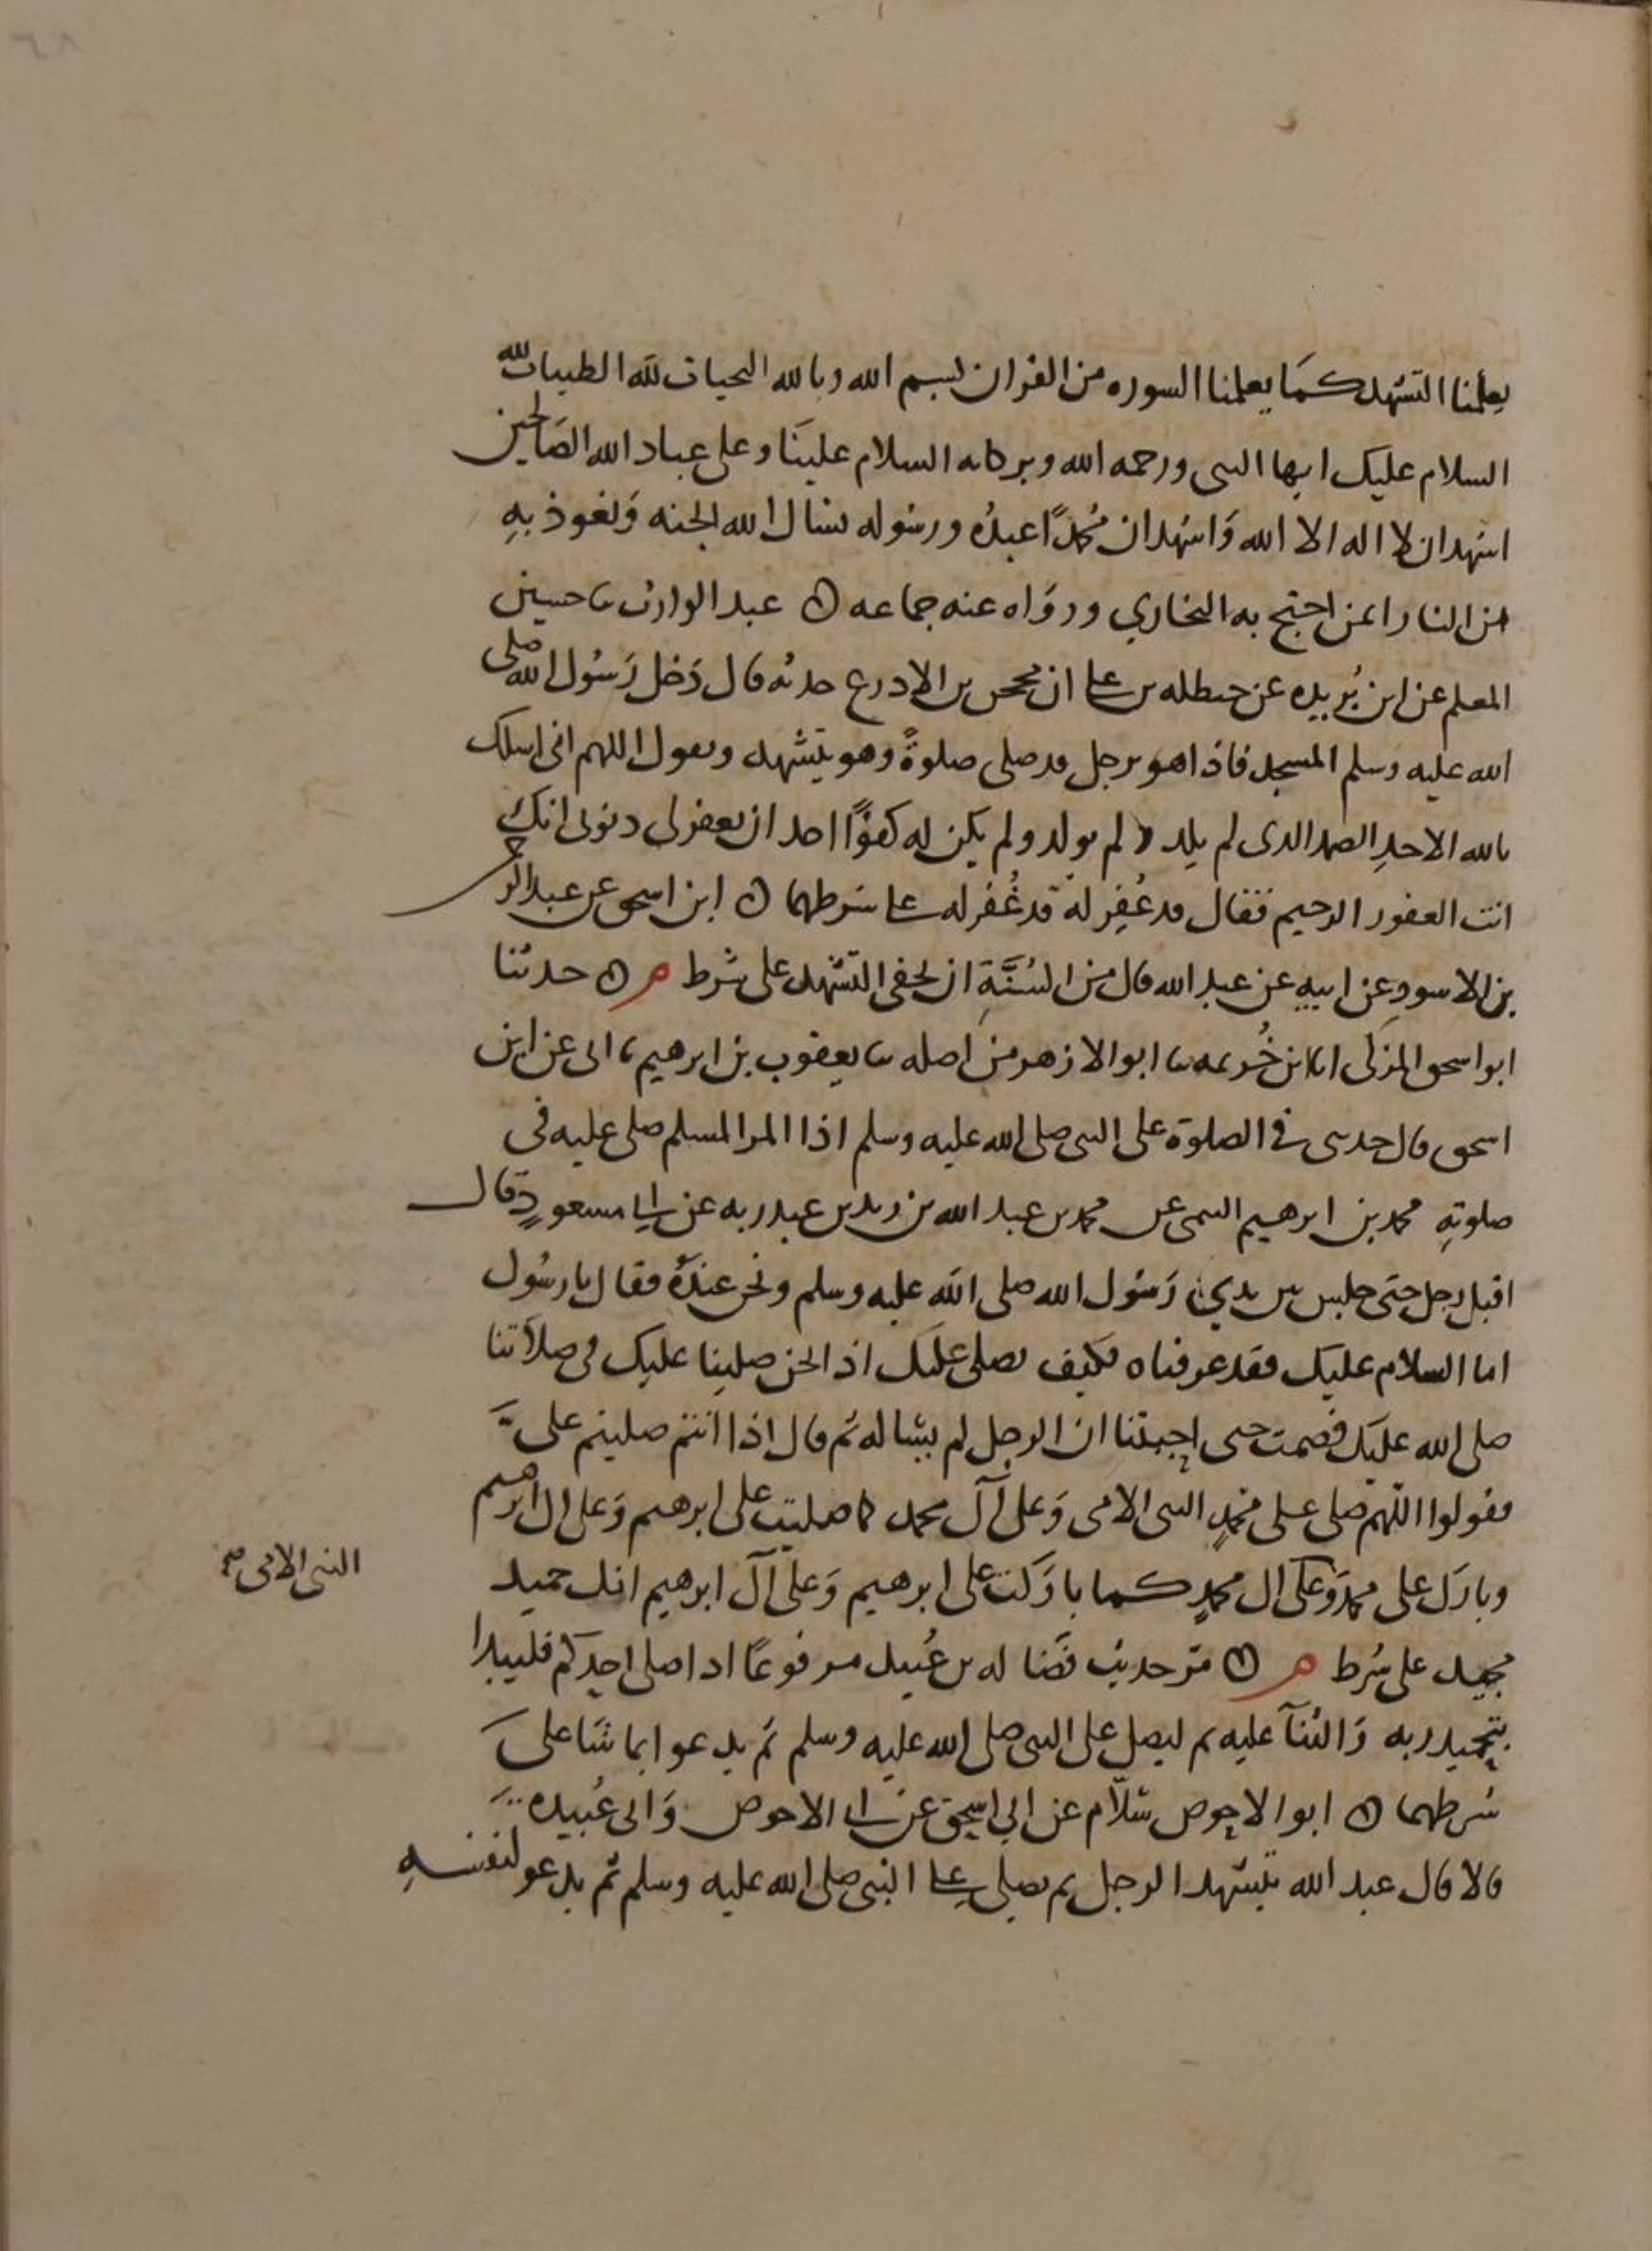 يعلمنا التشهد كما يعلمنا السوره من القران بسم الله وبالله التحيات لله الطيبات لله
السلام عليك ايها النبى ورحمه الله وبركاته السلام علينا وعلى عباد الله الصالحين
اشهد ان لا اله الا الله وَاشهد ان مُحمدًا عبدُه ورسوله نسال الله الجنه وَنعوذ بهِ
من النار ايمن احتج به البخاري وروَاه عنه جماعه ۞ عبد الوارث ثنا حسين
المعلم عن ابن بُريده عن حنظله بن على ان محجن بن الادرع حدثه قال دَخل رَسُول الله صلى
الله عليه وسلم المسجد فاذا هو برجل قد صلى صلوةً وهو يتشهد ويقول اللهم انى اسلك
بالله الاحدِ الصمد الذى لم يلد ولم يولد ولم يكن له كفوًا احد ان تغفر لى ذنوبى انك
انت الغفور الرحيم فقال قد غُفِر له قد غُفر له على شرطهما ۞ ابن اسحق عن عبد الرحمن
بن الاسودِ عن ابيهِ عن عبد الله قال من السُنَّةِ ان يخفى التشهد على شرط م ۞ حدثنا
ابو اسحق المزكى انا ابن خُزيمه ثنا ابو الازهر من اصله ثنا يعقوب بن ابرهيم ثنا ابى عن ابن
اسحق قال حدثنى فى الصلوة على النبى صلى الله عليه وسلم اذا المرا المسلم صلى عليه فى
صلوتهِ محمد بن ابرهيم التيمى عن محمد بن عبد الله بن زيد بن عبد ربه عن ابى مسعودٍ قال
اقبل رجل حتى جلس بين يدي رَسُول الله صلى الله عليه وسلم ونحن عندهُ فقال يا رسُول
اما السلام عليك فقد عرفناه فكيف نصلى عليك اذا نحن صلينا عليك فى صلاتنا
صلى الله عليك فصمت حتى اجبتنا ان الرجل لم يساله ثم قال اذا انتم صليتم علىَّ
فقولوا اللهم صلى على محمدٍ النبى الامى وَعلى آل محمد كما صليت على ابرهيم وَعلى ال ابرهيم
وبارك على محمد وَعلى ال محمدٍ كما باركت على ابرهيم وَعلى آل ابرهيم انك حميد
النبى الامى صح
مجيد على شرط م ۞ مرّ حديث فضاله بن عُبيد مرفوعًا اذا صلى احدكم فليبدا
بتحميد ربه وَالثنآ عليه ثم ليصل على النبى صلى الله عليه وسلم ثم يدعوا بما شا على
شرطهما ۞ ابو الاحوص سَلّام عن ابي اسحق عن ابى الاحوص وَابى عُبيده
قالا قال عبد الله يتشهد الرجل ثم يصلى على النبى صلى الله عليه وسلم ثم يدعو لنفسهِ